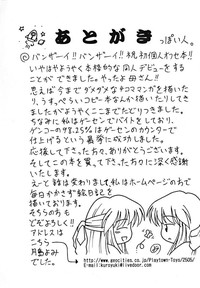 あとがき
っぽい人。
◎バンザーイ!!バンザーイ!!祝初個人オフ本!!
いやはやようやく本格的な同人デビューをする
ことができました。やったよ母さん!
思えば今までダメダメな4コママンガを描いた
り、うす〜ぺらいコピー本なんか描いたりして
きましたがようやくここまでたどりつきました。
ちなみに私はゲーセンでバイトをしており
ゲンコーの98.25%はゲーセンのカウンターで
仕上げるという暴挙に成功しました。
応援して下さった方々、ありがとうございます。
そしてこの本を買って下さった方々に深く感謝
いたします。
えーと話は変わりまして私はホームページの方で
毎日やかさず絵日記を
描いております。
そちらの方も
どうぞよろしく!!
アドレスは
こちら
月島よみ
でした。
http://www.geocities.co.jp/Playtown-Toys/2505/
E-mail:kuroyuki@livedoor.com